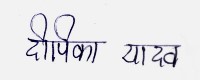 दीपिका यादव